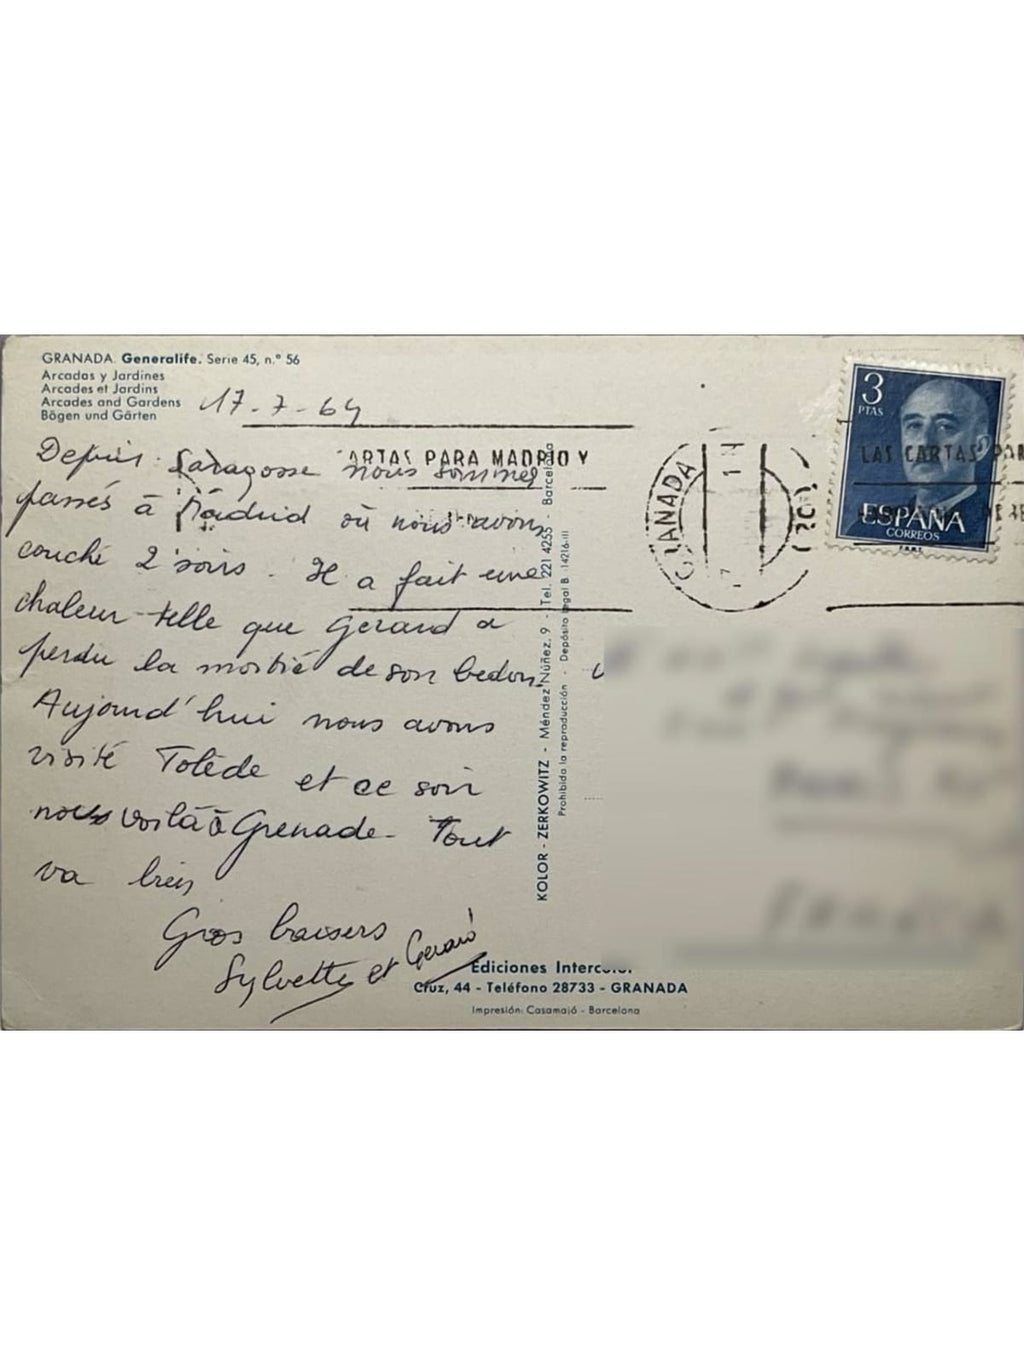 GRANADA. Generalife. Serie 45, n.º 56
Arcadas y Jardines
Arcades et Jardins
Arcades and Gardens
Bögen und Gärten
17-7-64
Depuis Saragosse nous sommes
passés à Madrid où nous avons
couché 2 soirs. Il a fait une
chaleur telle que Gerard a
perdu la moitié de son bedon.
Aujourd'hui nous avons
visité Tolède et ce soir
nous voilà à Grenade. Tout
va bien
Gros baisers
Sylvette et Gerard
ARTAS PARA MADRID Y
GRANADA
3
PTAS
ESPAÑA
CORREOS
LAS CARTAS PAR
KOLOR - ZERKOWITZ - Méndez Núñez, 9 - Tel. 221 4255 - Barcelona
Prohibida la reproducción - Depósito legal B. 14216-III
Ediciones Intercolor
Cruz, 44 - Teléfono 28733 - GRANADA
Impresión: Casamajó - Barcelona